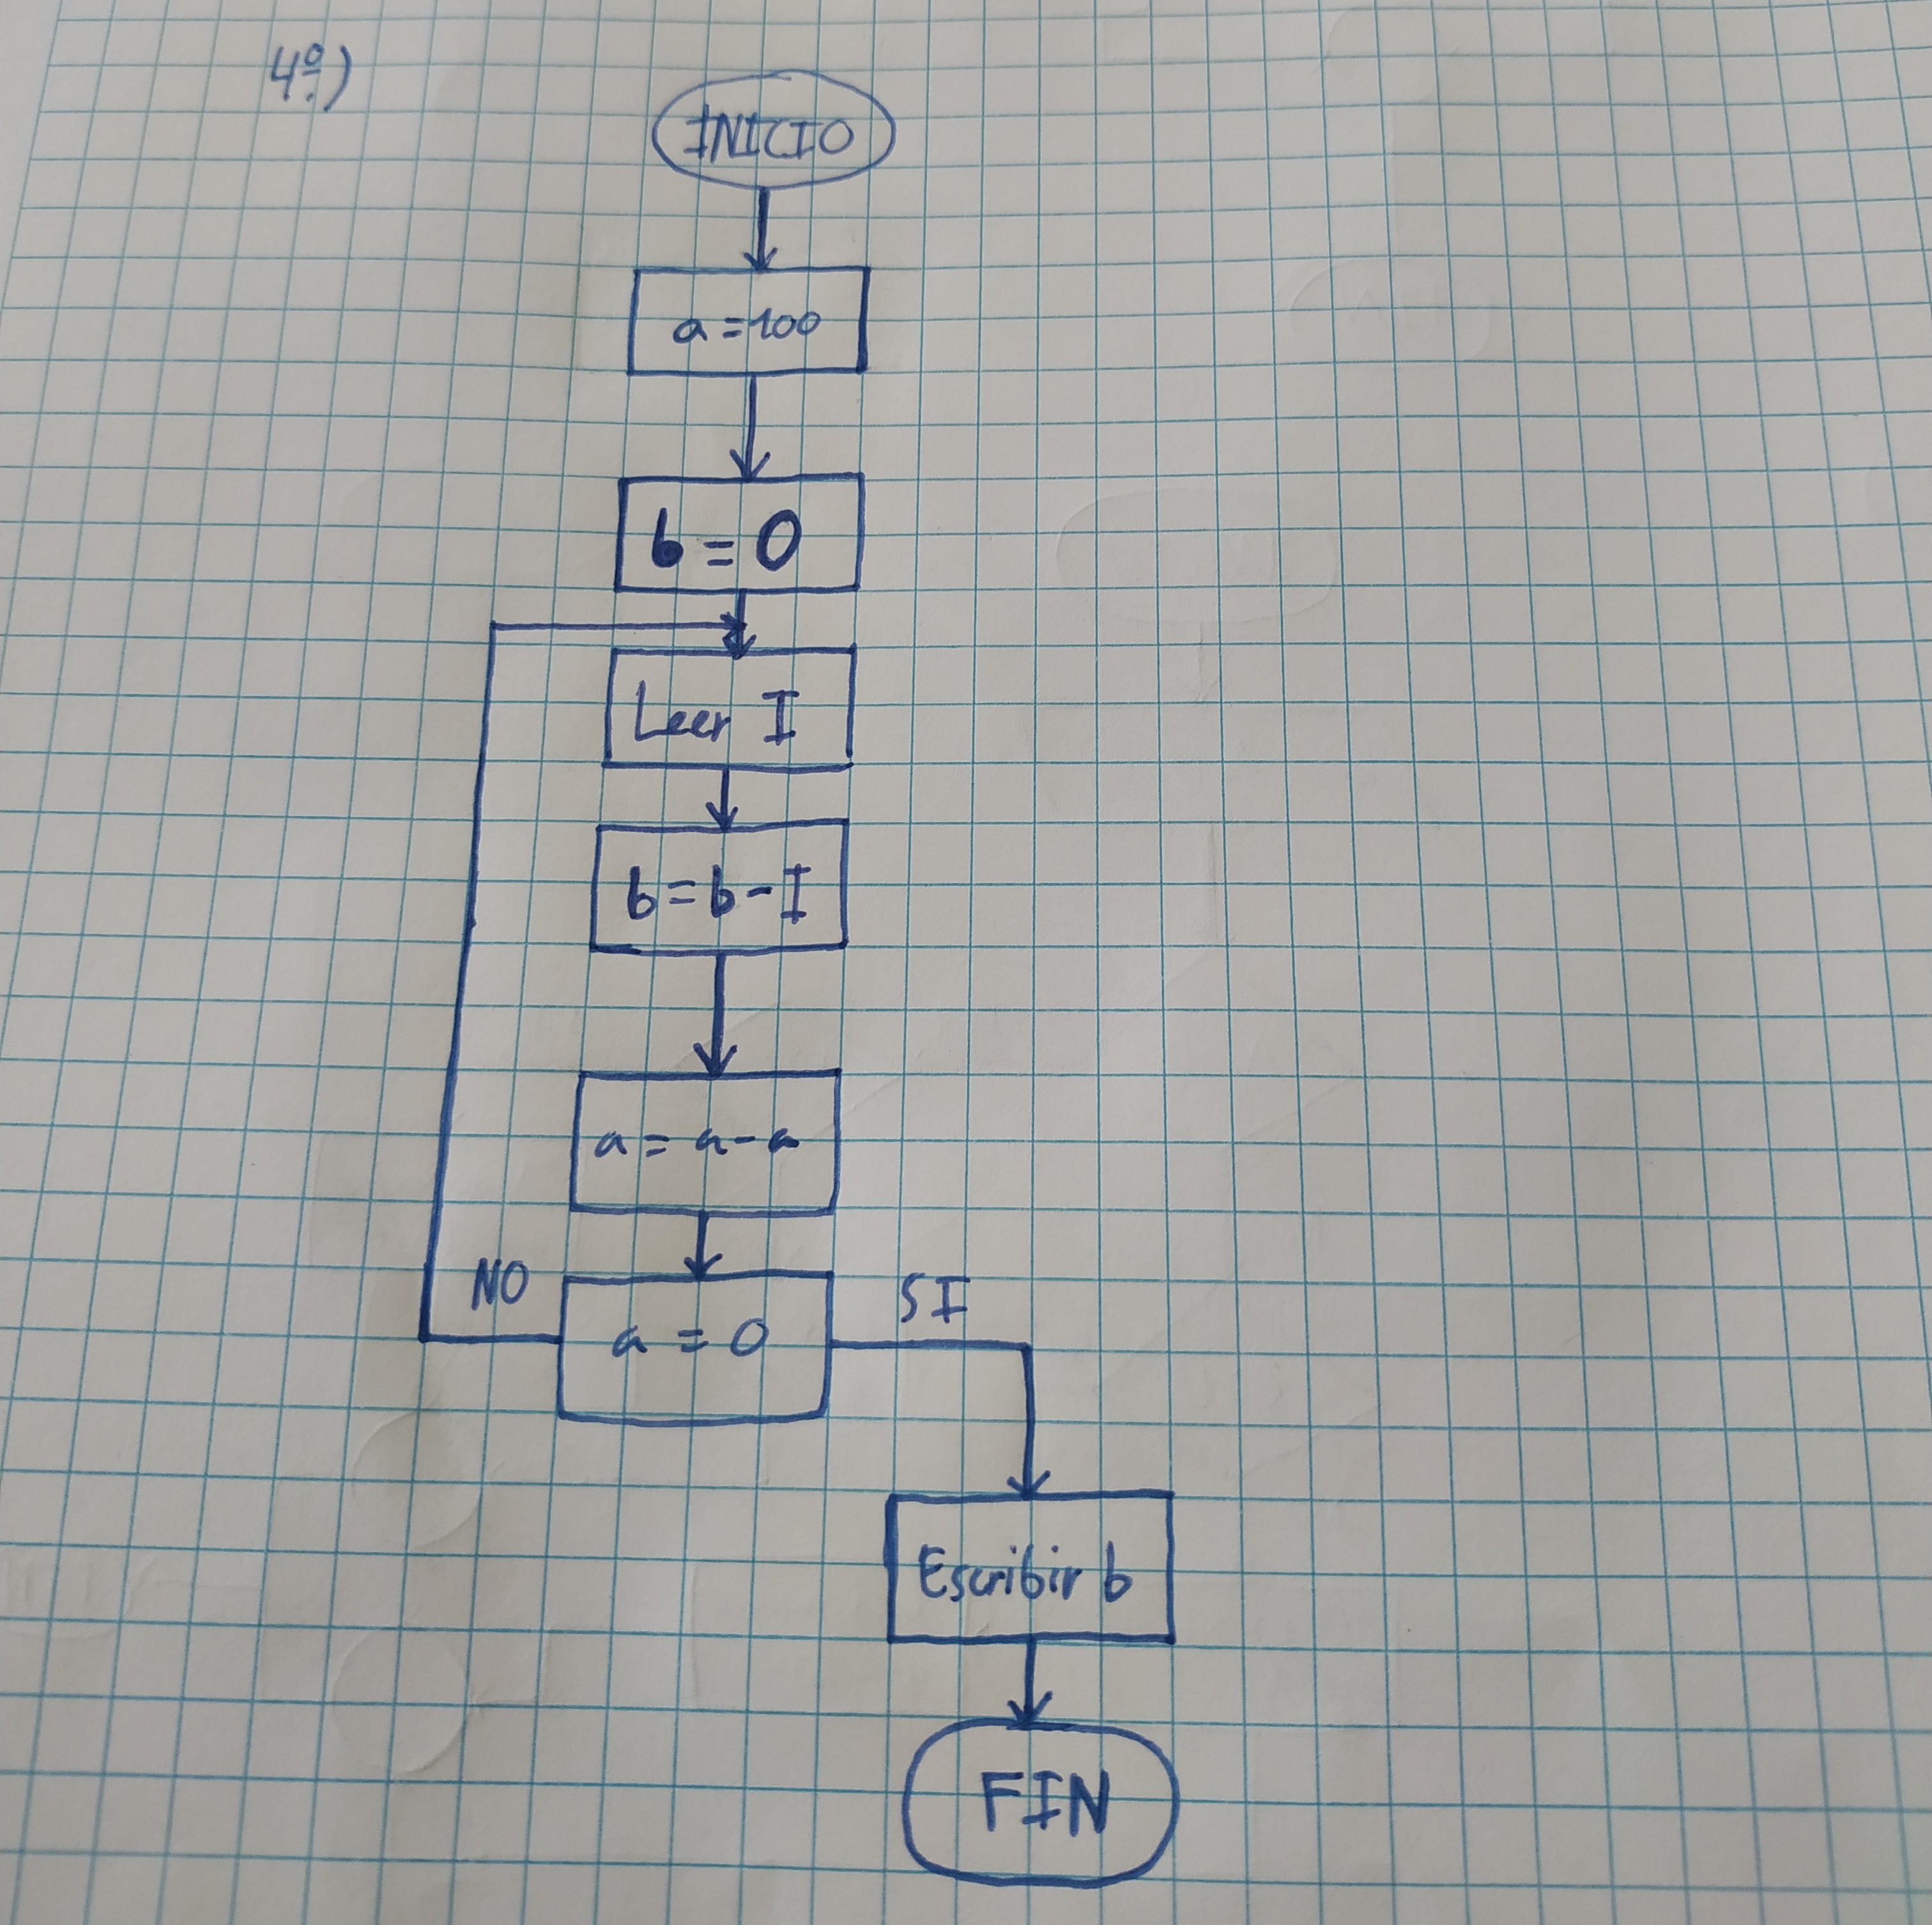 4º.)
INICIO
a = 100
b = 0
Leer I
b = b - I
a = a - a
NO
SI
a = 0
Escribir b
FIN